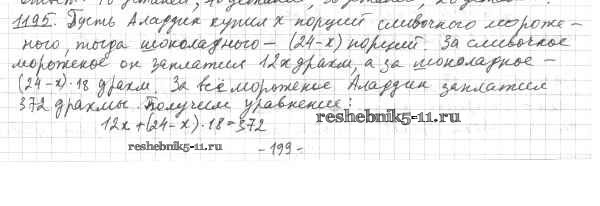 1195. Пусть Аладдин купил х порций сливочного мороже-
ного, тогда шоколадного – (24-х) порций. За сливочное
мороженое он заплатил 12х драхм, а за шоколадное –
(24-х)·18 драхм. За всё мороженое Аладдин заплатил
372 драхмы. Получим уравнение:
12х+(24-х)·18=372
reshebnik5-11.ru
reshebnik5-11.ru
-199-